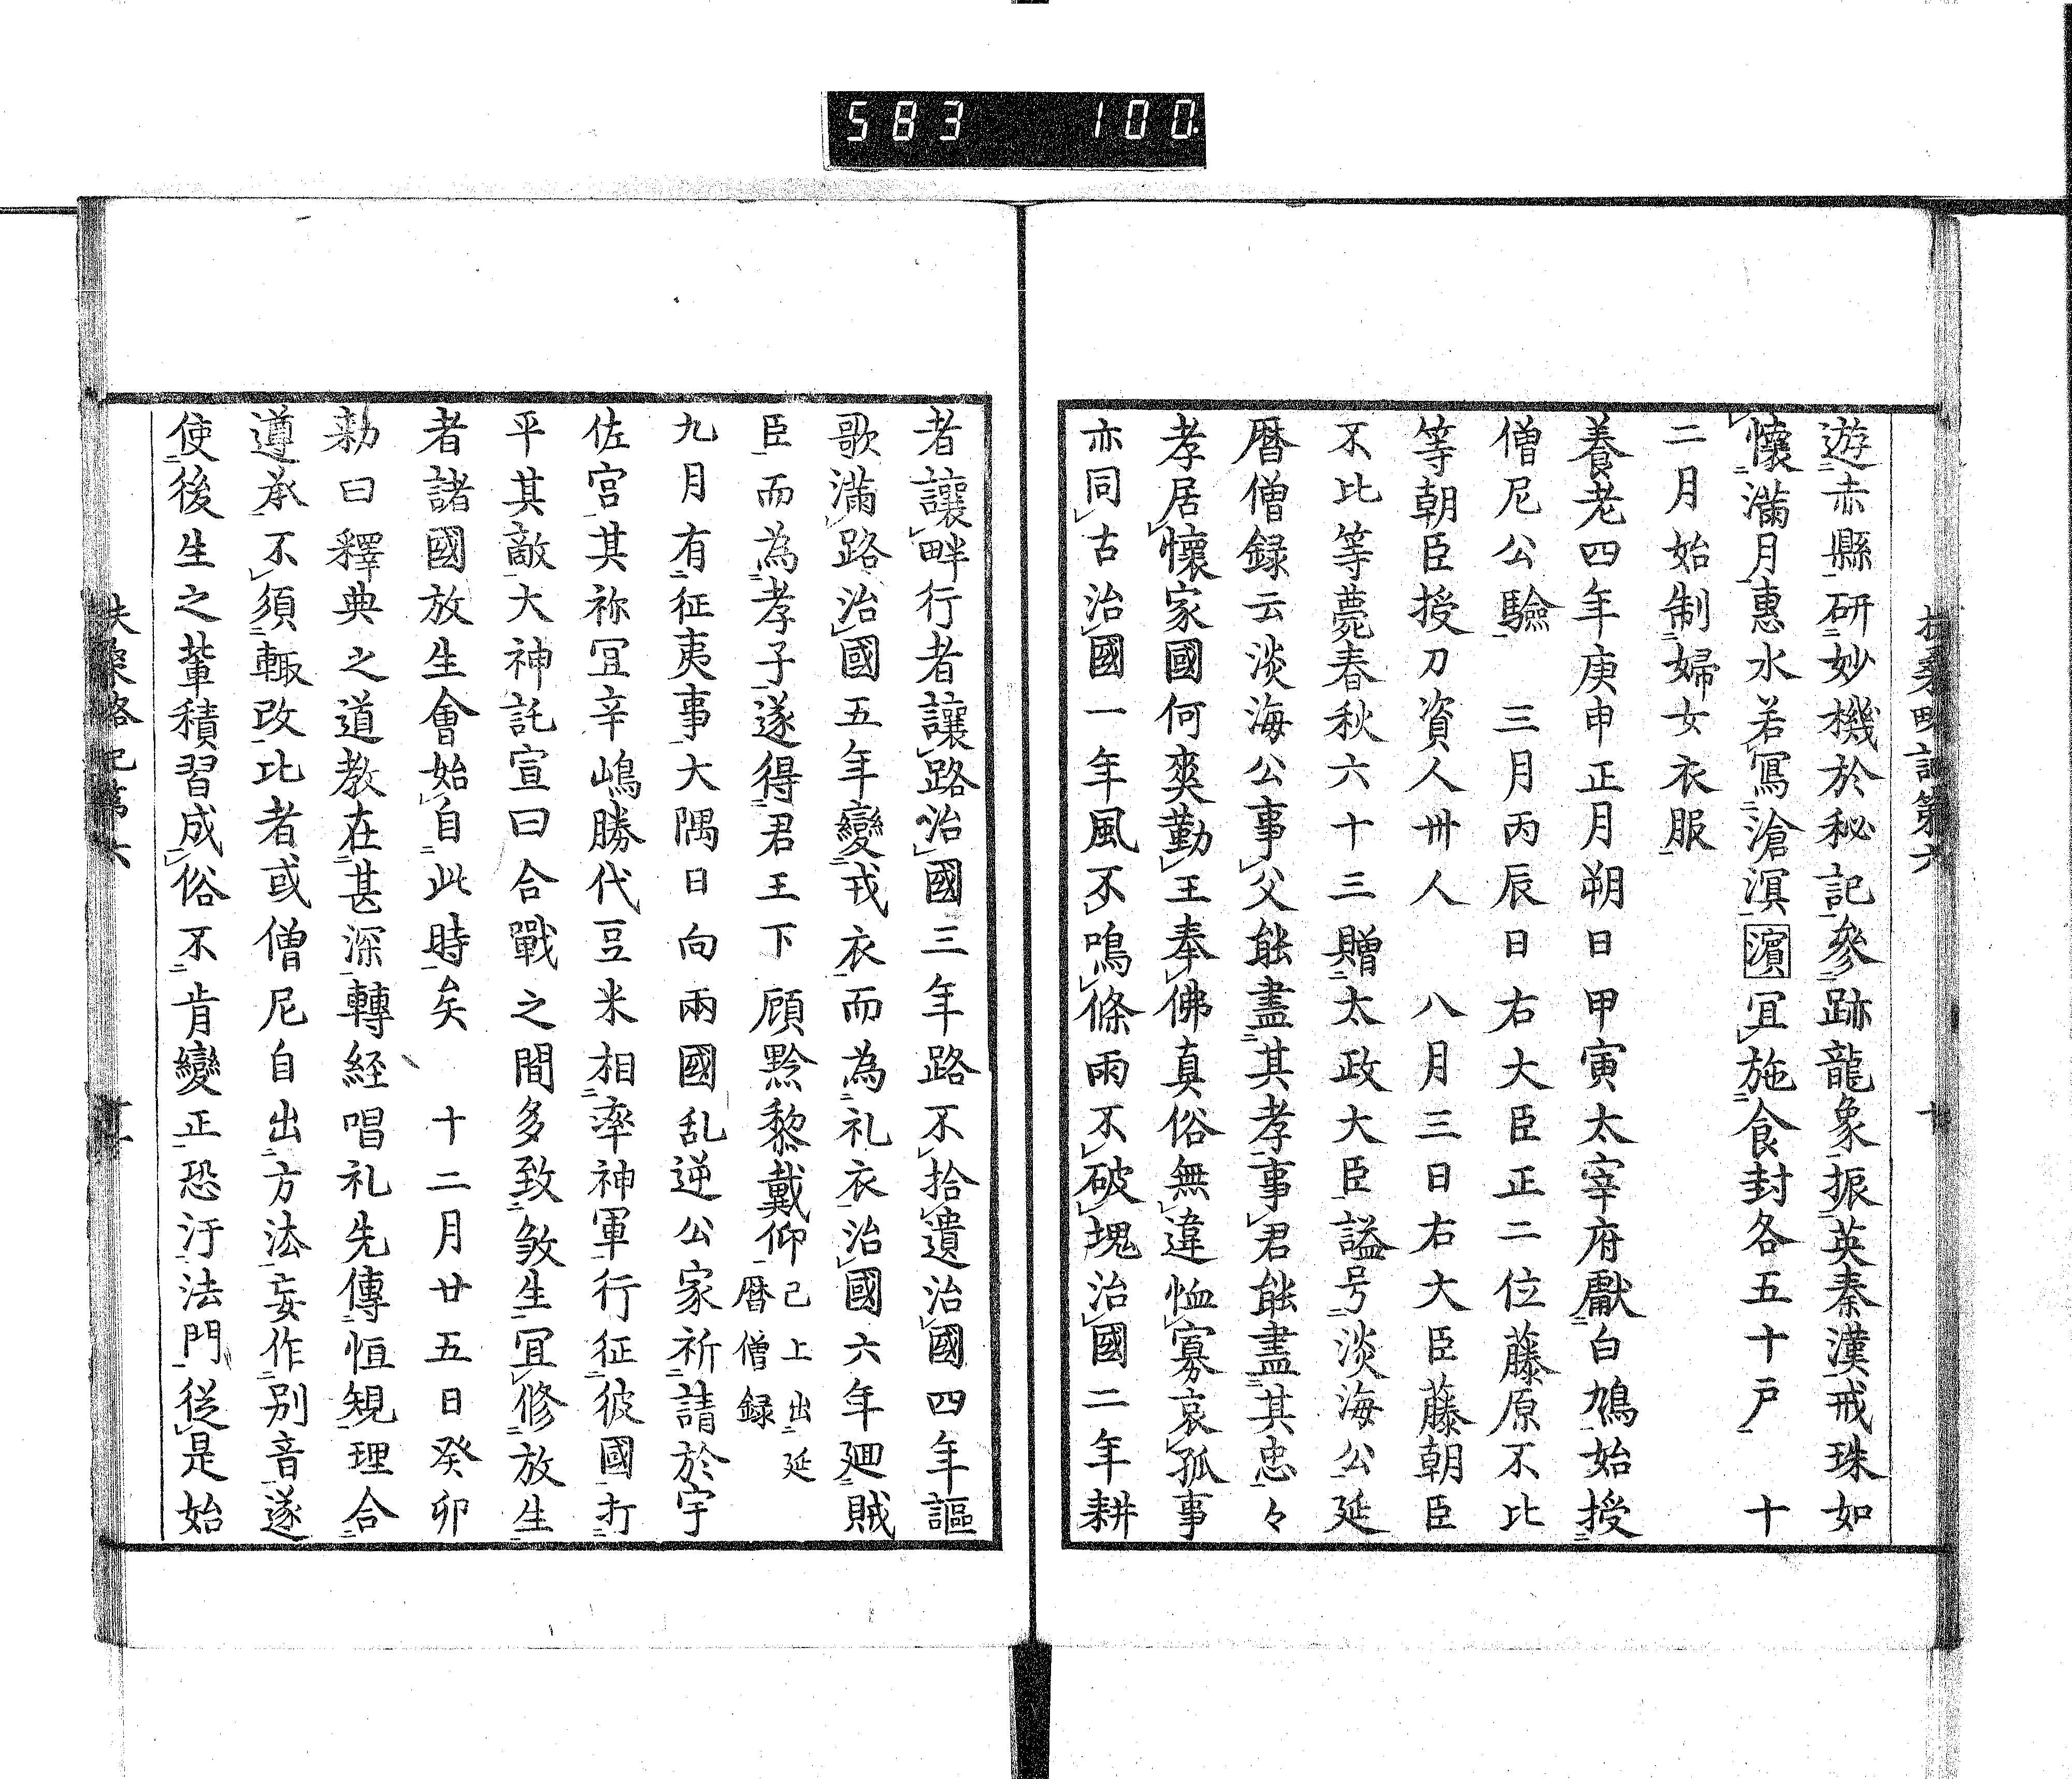 583 100.
扶桑略記第六
遊赤縣研妙機於秘記參跡龍象振英秦漢戒珠如
懷滿月惠水若寫滄溟濵冝施食封各五十戸 十
二月始制婦女衣服
養老四年庚申正月朔日甲寅太宰府獻白鳩始授
僧尼公驗 三月丙辰日右大臣正二位藤原不比
等朝臣授刀資人卅人 八月三日右大臣藤朝臣
不比等薨春秋六十三贈太政大臣謚号淡海公延
暦僧録云淡海公事父能盡其孝事君能盡其忠々
孝居懷家國何爽勤王奉佛真俗無違恤寡哀孤事
亦同古治國一年風不鳴條雨不破塊治國二年耕
者讓畔行者讓路治國三年路不拾遺治國四年謳
歌滿路治國五年變戎衣而為礼衣治國六年廻賊
臣而為孝子遂得君王下顧黔黎戴仰己上出延
暦僧録
九月有征夷事大隅日向兩國乱逆公家祈請於宇
佐宮其祢冝辛嶋勝代豆米相率神軍行征彼國打
平其敵大神託宣曰合戰之間多致煞生冝修放生
者諸國放生會始自此時矣 十二月廿五日癸卯
勅曰釋典之道教在甚深轉経唱礼先傳恒規理合
遵承不須輙改比者或僧尼自出方法妄作別音遂
使後生之輩積習成俗不肯變正恐汙法門從是始
扶桑略記第六